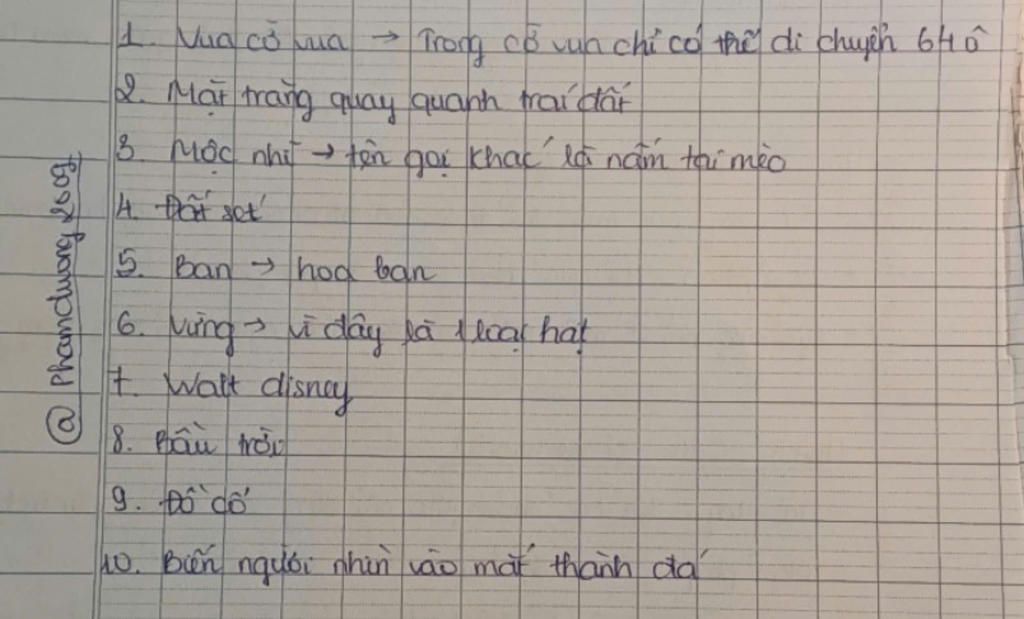 1. Vua cờ vua → Trong cờ vua chỉ có thể di chuyển 64 ô
2. Mặt trăng quay quanh trái đất
3. Mộc nhĩ → tên gọi khác là nấm tai mèo
4. Đất sét
5. Ban → hoa ban
6. Vừng → vì đây là 1 loại hạt
7. Walt disney
8. Bầu trời
9. Đố đố
10. Biến người nhìn vào mắt thành đá
@ phamduong2009